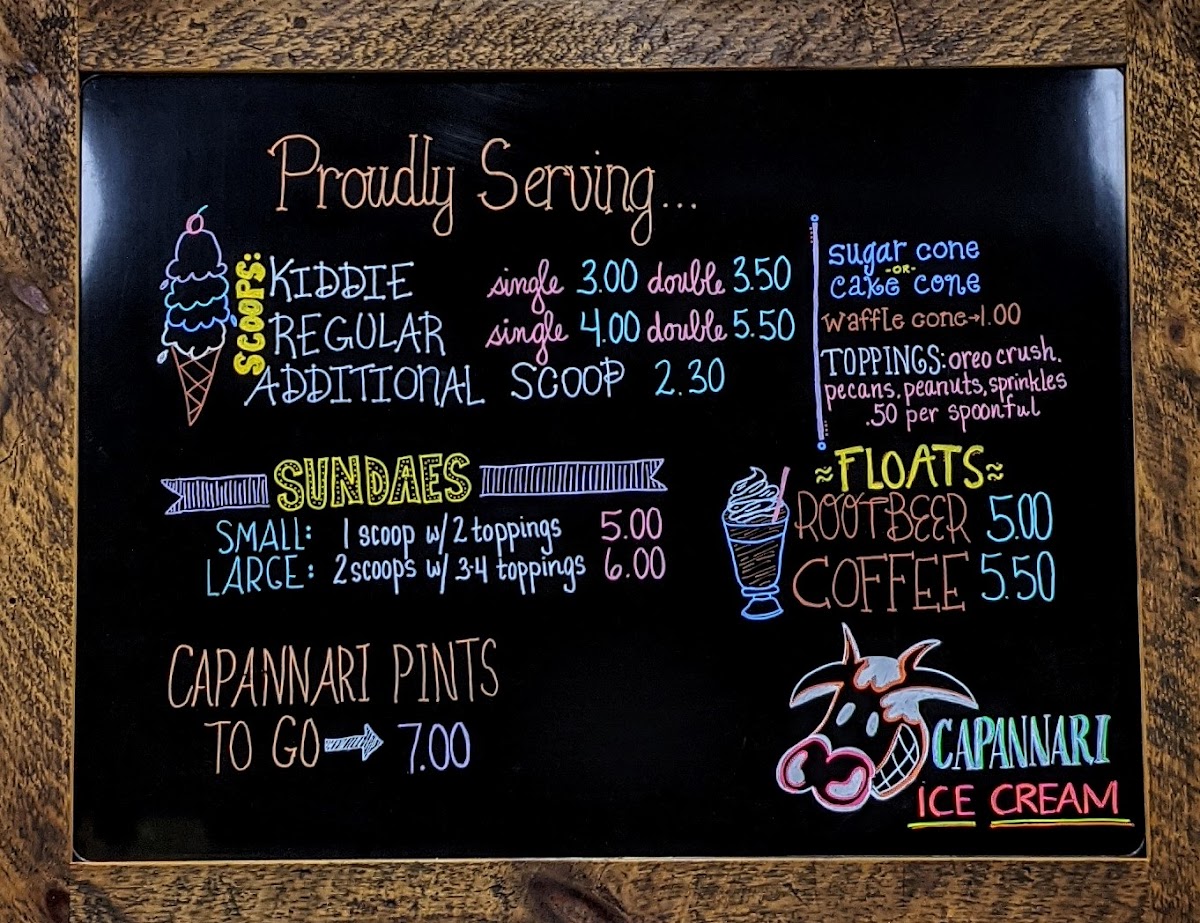 Proudly Serving...
SCOOPS:
KIDDIE single 3.00 double 3.50
REGULAR single 4.00 double 5.50
ADDITIONAL SCOOP 2.30
sugar cone
-OR-
cake cone
waffle cone→1.00
TOPPINGS: oreo crush,
pecans, peanuts, sprinkles
.50 per spoonful
SUNDAES
SMALL: 1 scoop w/ 2 toppings 5.00
LARGE: 2 scoops w/ 3-4 toppings 6.00
≈FLOATS≈
ROOTBEER 5.00
COFFEE 5.50
CAPANNARI PINTS
TO GO → 7.00
CAPANNARI
ICE CREAM